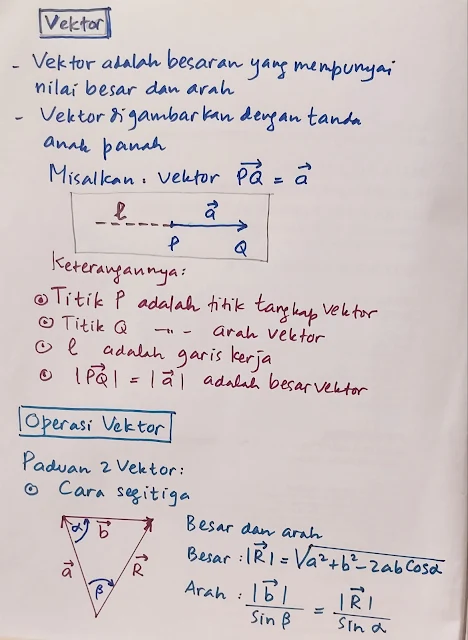 Vektor
- Vektor adalah besaran yang mempunyai
nilai besar dan arah
- Vektor digambarkan dengan tanda
anak panah
Misalkan. vektor \overrightarrow{PQ} = \vec{a}
l \vec{a}
P Q
Keterangannya:
⊙ Titik P adalah titik tangkap vektor
⊙ Titik Q –"– arah vektor
⊙ l adalah garis kerja
⊙ |\overrightarrow{PQ}| = |\vec{a}| adalah besar vektor
Operasi Vektor
Paduan 2 Vektor:
⊙ Cara segitiga
α \vec{b}
\vec{a} \vec{R}
β
Besar dan arah
Besar : |\vec{R}| = √(a²+b²-2ab Cosα)
Arah : |\vec{b}| / Sin β = |\vec{R}| / Sin α